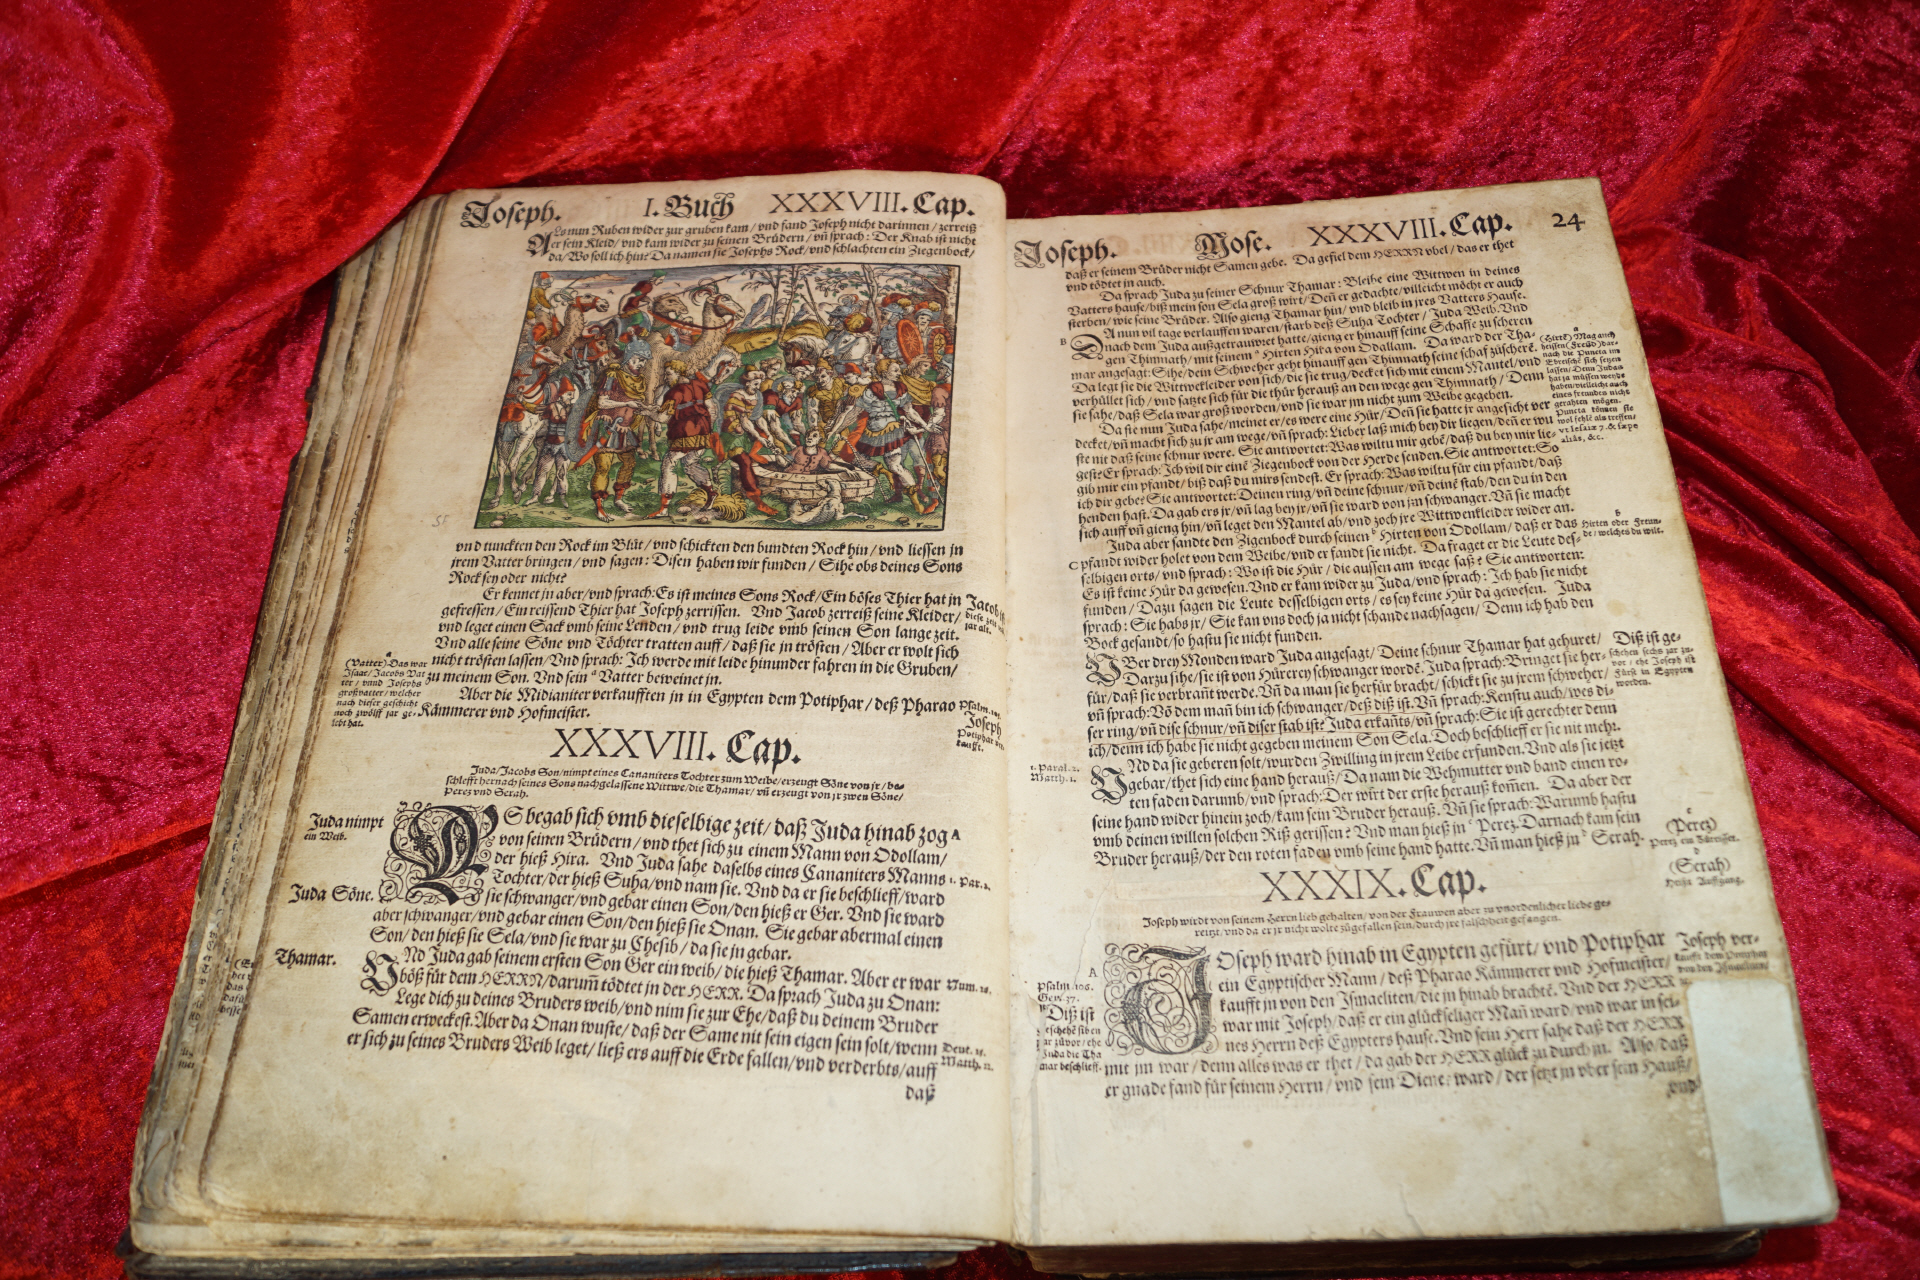 Joseph. I. Buch XXXVIII. Cap.
Als nun Ruben wider zur gruben kam / vnd fand Joseph nicht darinnen / zerreiß
er sein Kleid / vnd kam wider zu seinen Brüdern / vñ sprach: Der Knab ist nicht
da / Wo soll ich hin? Da namen sie Josephs Rock / vnd schlachten ein Ziegenbock /
vnd tunckten den Rock im Blůt / vnd schickten den bundten Rock hin / vnd liessen jn
jrem Vatter bringen / vnd sagen: Disen haben wir funden / Sihe obs deines Sons
Rock sey oder nicht?
Er kennet jn aber / vnd sprach: Es ist meines Sons Rock / Ein böses Thier hat jn
gefressen / Ein reissend Thier hat Joseph zerrissen. Vnd Jacob zerreiß seine Kleider /
vnd leget einen Sack vmb seine Lenden / vnd trug leide vmb seinen Son lange zeit.
Vnd alle seine Söne vnd Töchter tratten auff / daß sie jn trösten / Aber er wolt sich
nicht trösten lassen / Vnd sprach: Ich werde mit leide hinunder fahren in die Gruben /
zu meinem Son. Vnd sein a Vatter beweinet jn.
Aber die Midianiter verkaufften jn in Egypten dem Potiphar / deß Pharao
Kämmerer vnd Hofmeister.
a
(Vatter) Das war
Isaac / Jacobs Vat
ter / vnnd Josephs
großvatter / welcher
nach dieser geschicht
noch zwölff jar ge-
lebt hat.
Jacob
diese zeit
jar alt.
Psalm.
Joseph
Potiphar
kaufft.
XXXVIII. Cap.
Juda / Jacobs Son / nimpt eines Cananiters Tochter zum Weibe / erzeugt Söne von jr / be-
schlefft hernach seines Sons nachgelassene Wittwe / die Thamar / vñ erzeugt von jr zwen Söne /
Perez vnd Serah.
Juda nimpt
ein Weib.
ES begab sich vmb dieselbige zeit / daß Juda hinab zog A
von seinen Brüdern / vnd thet sich zu einem Mann von Odollam /
der hieß Hira. Vnd Juda sahe daselbs eines Cananiters Manns 1. Par. 2.
Tochter / der hieß Suha / vnd nam sie. Vnd da er sie beschlieff / ward
Juda Söne.
sie schwanger / vnd gebar einen Son / den hieß er Ger. Vnd sie ward
aber schwanger / vnd gebar einen Son / den hieß sie Onan. Sie gebar abermal einen
Son / den hieß sie Sela / vnd sie war zu Chesib / da sie jn gebar.
Thamar.
VNd Juda gab seinem ersten Son Ger ein weib / die hieß Thamar. Aber er war
böß für dem HERRN / darumb tödtet in der HERR. Da sprach Juda zu Onan:
Lege dich zu deines Bruders weib / vnd nim sie zur Ehe / daß du deinem Bruder
Samen erweckest. Aber da Onan wuste / daß der Same nit sein eigen sein solt / wenn
er sich zu seines Bruders Weib leget / ließ ers auff die Erde fallen / vnd verderbts / auff
daß
Num. 26.
Deut.
Matth. 22.
Joseph. Mose. XXXVIII. Cap. 24
daß er seinem Brůder nicht Samen gebe. Da gefiel dem HERRN vbel / das er thet
vnd tödtet jn auch.
Da sprach Juda zu seiner Schnur Thamar: Bleibe eine Wittwen in deines
Vatters hause / biß mein son Sela groß wirt / Deñ er gedachte / villeicht möcht er auch
sterben / wie seine Brüder. Also gieng Thamar hin / vnd bleib in jres Vatters Hause.
B DA nun vil tage verlauffen waren / starb deß Suha Tochter / Juda Weib. Vnd
nach dem Juda außgetrauwret hatte / gieng er hinauff seine Schaffe zu scheren
gen Thimnath / mit seinem a Hirten Hira von Odollam. Da ward der Tha-
mar angesagt: Sihe / dein Schweher geht hinauff gen Thimnath seine schaf zůscherẽ.
Da legt sie die Wittwekleider von sich / die sie trug / decket sich mit einem Mantel / vnd
verhüllet sich / vnd satzte sich für die thür herauß an den wege gen Thimnath / Denn
sie sahe / daß Sela war groß worden / vnd sie war jm nicht zum Weibe gegeben.
Da sie nun Juda sahe / meinet er / es were eine Hůr / Deñ sie hatte jr angesicht ver
decket / vñ macht sich zu jr am wege / vñ sprach: Lieber laß mich bey dir liegen / deñ er wu
ste nit daß seine schnur were. Sie antwortet: Was wiltu mir gebẽ / daß du bey mir lie-
gest? Er sprach: Ich wil dir einẽ Ziegenbock von der Herde senden. Sie antwortet: So
gib mir ein pfandt / biß daß du mirs sendest. Er sprach: Was wiltu für ein pfandt / daß
ich dir gebe? Sie antwortet: Deinen ring / vñ deine schnur / vñ deinẽ stab / den du in den
henden hast. Da gab ers jr / vñ lag bey jr / vñ sie ward von jm schwanger. Vñ sie macht
sich auff vñ gieng hin / vñ leget den Mantel ab / vnd zoch jre Wittwenkleider wider an.
Juda aber sandte den Zigenbock durch seinen b Hirten von Odollam / daß er das
C pfandt wider holet von dem Weibe / vnd er fandt sie nicht. Da fraget er die Leute des-
selbigen orts / vnd sprach: Wo ist die Hůr / die aussen am wege saß? Sie antworten:
Es ist keine Hůr da gewesen. Vnd er kam wider zu Juda / vnd sprach: Ich hab sie nicht
funden / Dazu sagen die Leute desselbigen orts / es sey keine Hůr da gewesen. Juda
sprach: Sie habs jr / Sie kan vns doch ja nicht schande nachsagen / Denn ich hab den
Bock gesandt / so hastu sie nicht funden.
VBer drey Monden ward Juda angesagt / Deine schnur Thamar hat gehuret /
Darzu sihe / sie ist von Hůrerey schwanger wordẽ. Juda sprach: Bringet sie her-
für / daß sie verbrañt werde. Vñ da man sie herfür bracht / schickt sie zu jrem schweher /
vñ sprach: Võ dem mañ bin ich schwanger / deß diß ist. Vñ sprach: Kenstu auch / wes di-
ser ring / vñ dise schnur / vñ diser stab ist? Juda erkañts / vñ sprach: Sie ist gerechter denn
ich / denn ich habe sie nicht gegeben meinem Son Sela. Doch beschlieff er sie nit mehr.
VNd da sie geberen solt / wurden Zwilling in jrem Leibe erfunden. Vnd als sie jetzt
gebar / thet sich eine hand herauß / Da nam die Wehmutter vnd band einen ro-
ten faden darumb / vnd sprach: Der würt der erste herauß kom̃en. Da aber der
seine hand wider hinein zoch / kam sein Bruder herauß. Vñ sie sprach: Warumb hastu
vmb deinen willen solchen Riß gerissen? Vnd man hieß jn c Perez. Darnach kam sein
Bruder herauß / der den roten faden vmb seine hand hatte. Vñ man hieß jn d Serah.
a
(Hirtẽ) Mag auch
heissen (Freũd) dar-
nach die Puncta im
Ebreischẽ sich setzen
lassen / Denn Judas
hat ja müssen weyde
haben / vielleicht auch
eines freunden nicht
gerahten mögen.
Puncta können sie
wol fehlẽ als treffen /
b
Hirten oder Freun-
de / welches du wilt.
Diß ist ge-
schehen sechs jar zu-
vor / ehe Joseph ist
Fürst in Egypten
worden.
1. Paral. 2.
Matth. 1.
c
(Perez)
Perez ein Zureisser.
d
(Serah)
Heißt Auffgang.
XXXIX. Cap.
Joseph wirdt von seinem Herrn lieb gehalten / von der Frauwen aber zu vnordenlicher liebe ge-
reitzt / vnd da er jr nicht wolte zůgefallen sein / durch jre falschheit gefangen.
A
Psalm. 106.
Gen. 37.
Diß ist
geschehẽ siben
jar zůvor / ehe
Juda die Tha
mar beschlieff.
JOseph ward hinab in Egypten gefürt / vnd Potiphar
ein Egyptischer Mann / deß Pharao Kämmerer vnd Hofmeister /
kaufft jn von den Ismaeliten / die jn hinab brachtẽ. Vnd der HERR
war mit Joseph / daß er ein glückseliger Mañ ward / vnd war in sei-
nes Herrn deß Egypters hause. Vnd sein Herr sahe daß der HERR
mit jm war / denn alles was er thet / da gab der HERR glück zu durch jn. Also / daß
er gnade fand für seinem Herrn / vnd sein Diener ward / der setzt jn vber sein Hauß /
vnd
Joseph ver-
kaufft dem Potiphar
von den Ismaeliten /